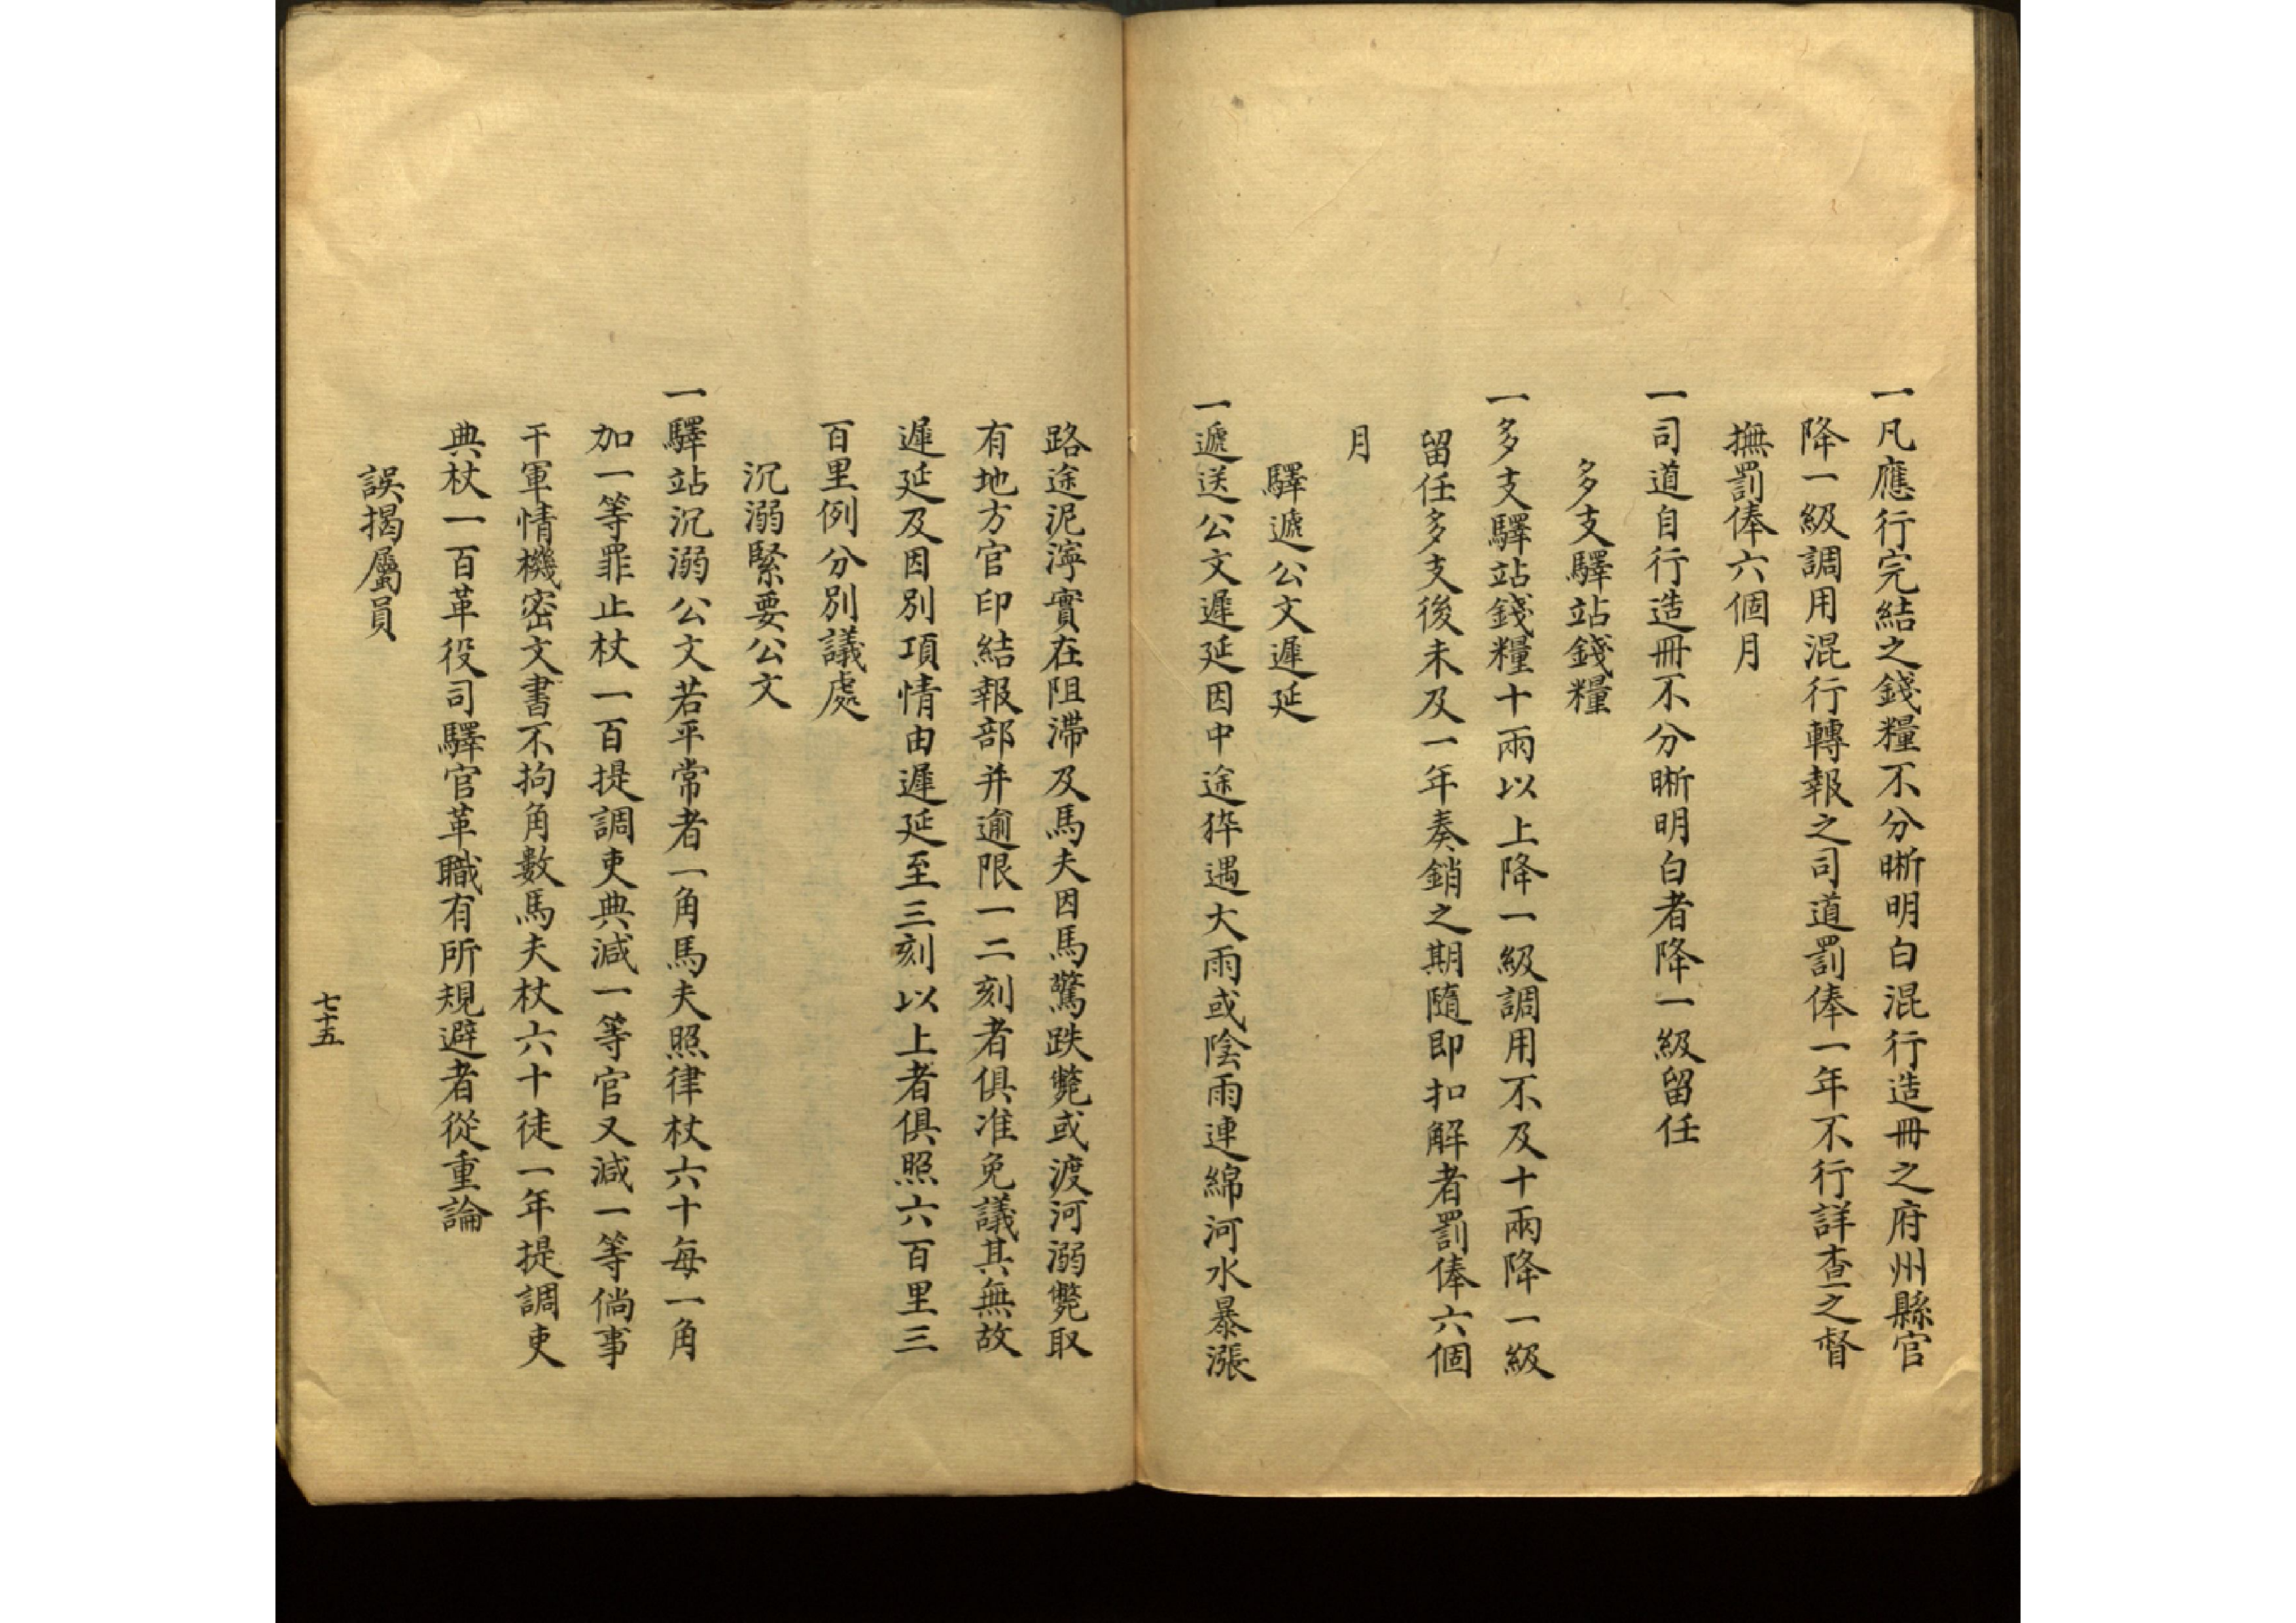 一凡應行完結之錢糧不分晰明白混行造冊之府州縣官
降一級調用混行轉報之司道罰俸一年不行詳查之督
撫罰俸六個月
一司道自行造冊不分晰明白者降一級留任
多支驛站錢糧
一多支驛站錢糧十兩以上降一級調用不及十兩降一級
留任多支後未及一年奏銷之期隨即扣解者罰俸六個
月
驛遞公文遲延
一遞送公文遲延因中途猝遇大雨或陰雨連綿河水暴漲
路途泥濘實在阻滯及馬夫因馬驚跌斃或渡河溺斃取
有地方官印結報部并逾限一二刻者俱准免議其無故
遲延及因別項情由遲延至三刻以上者俱照六百里三
百里例分別議處
沉溺緊要公文
一驛站沉溺公文若平常者一角馬夫照律杖六十每一角
加一等罪止杖一百提調吏典減一等官又減一等倘事
干軍情機密文書不拘角數馬夫杖六十徒一年提調吏
典杖一百革役司驛官革職有所規避者從重論
誤揭屬員
七十五